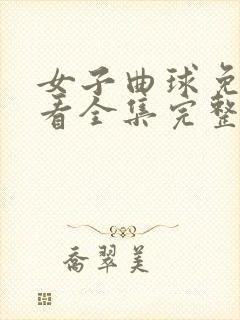 女子曲球免
看全集完整
乔翠美